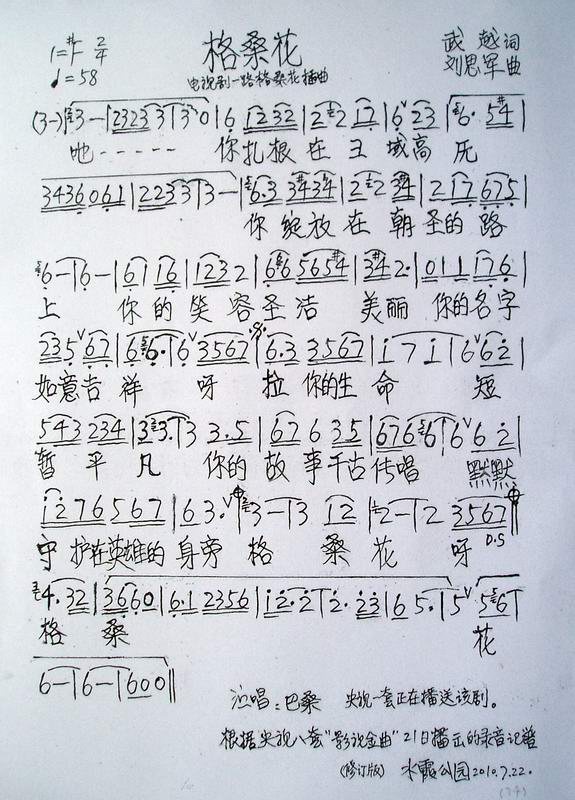 格桑花
1=#F 2/4
武越词
♩=58
电视剧一路格桑花插曲
刘思军曲
(3-)3-|232333|30|6 1232|2 2 17|6 23|6· 5#4|
吔----- 你扎根在王域高厄
3436061|2233|3-|6·3 3434|2 2 34|2 17 675|
你绽放在朝圣的路
6-|6-|61 16|123 2|66 5654|34 2·|011 176|
上 你的笑容圣洁 美丽 你的名字
235 67|6 6·|6 3567|6·3 3567|1 7 1|6 62|
如意吉祥 呀 拉 你的生命 短
543 234|3 3·|3 3·5|67 6 35|676 6|6 6 2|
暂平凡 你的故事千古传唱 默默
1276567|6 3·|3-|3 12|2-|2 3567|
守护在英雄的身旁 格桑花呀 D.S
4·32|3660|6·1 2356|12·2|2·23|6 5·|5 56|
格桑 花
6-|6-|600‖
演唱:巴桑 央视一套正在播送该剧。
根据央视八套"影视金曲"21日播出的录音记谱
(修订版) 水霞公园2010.7.22.